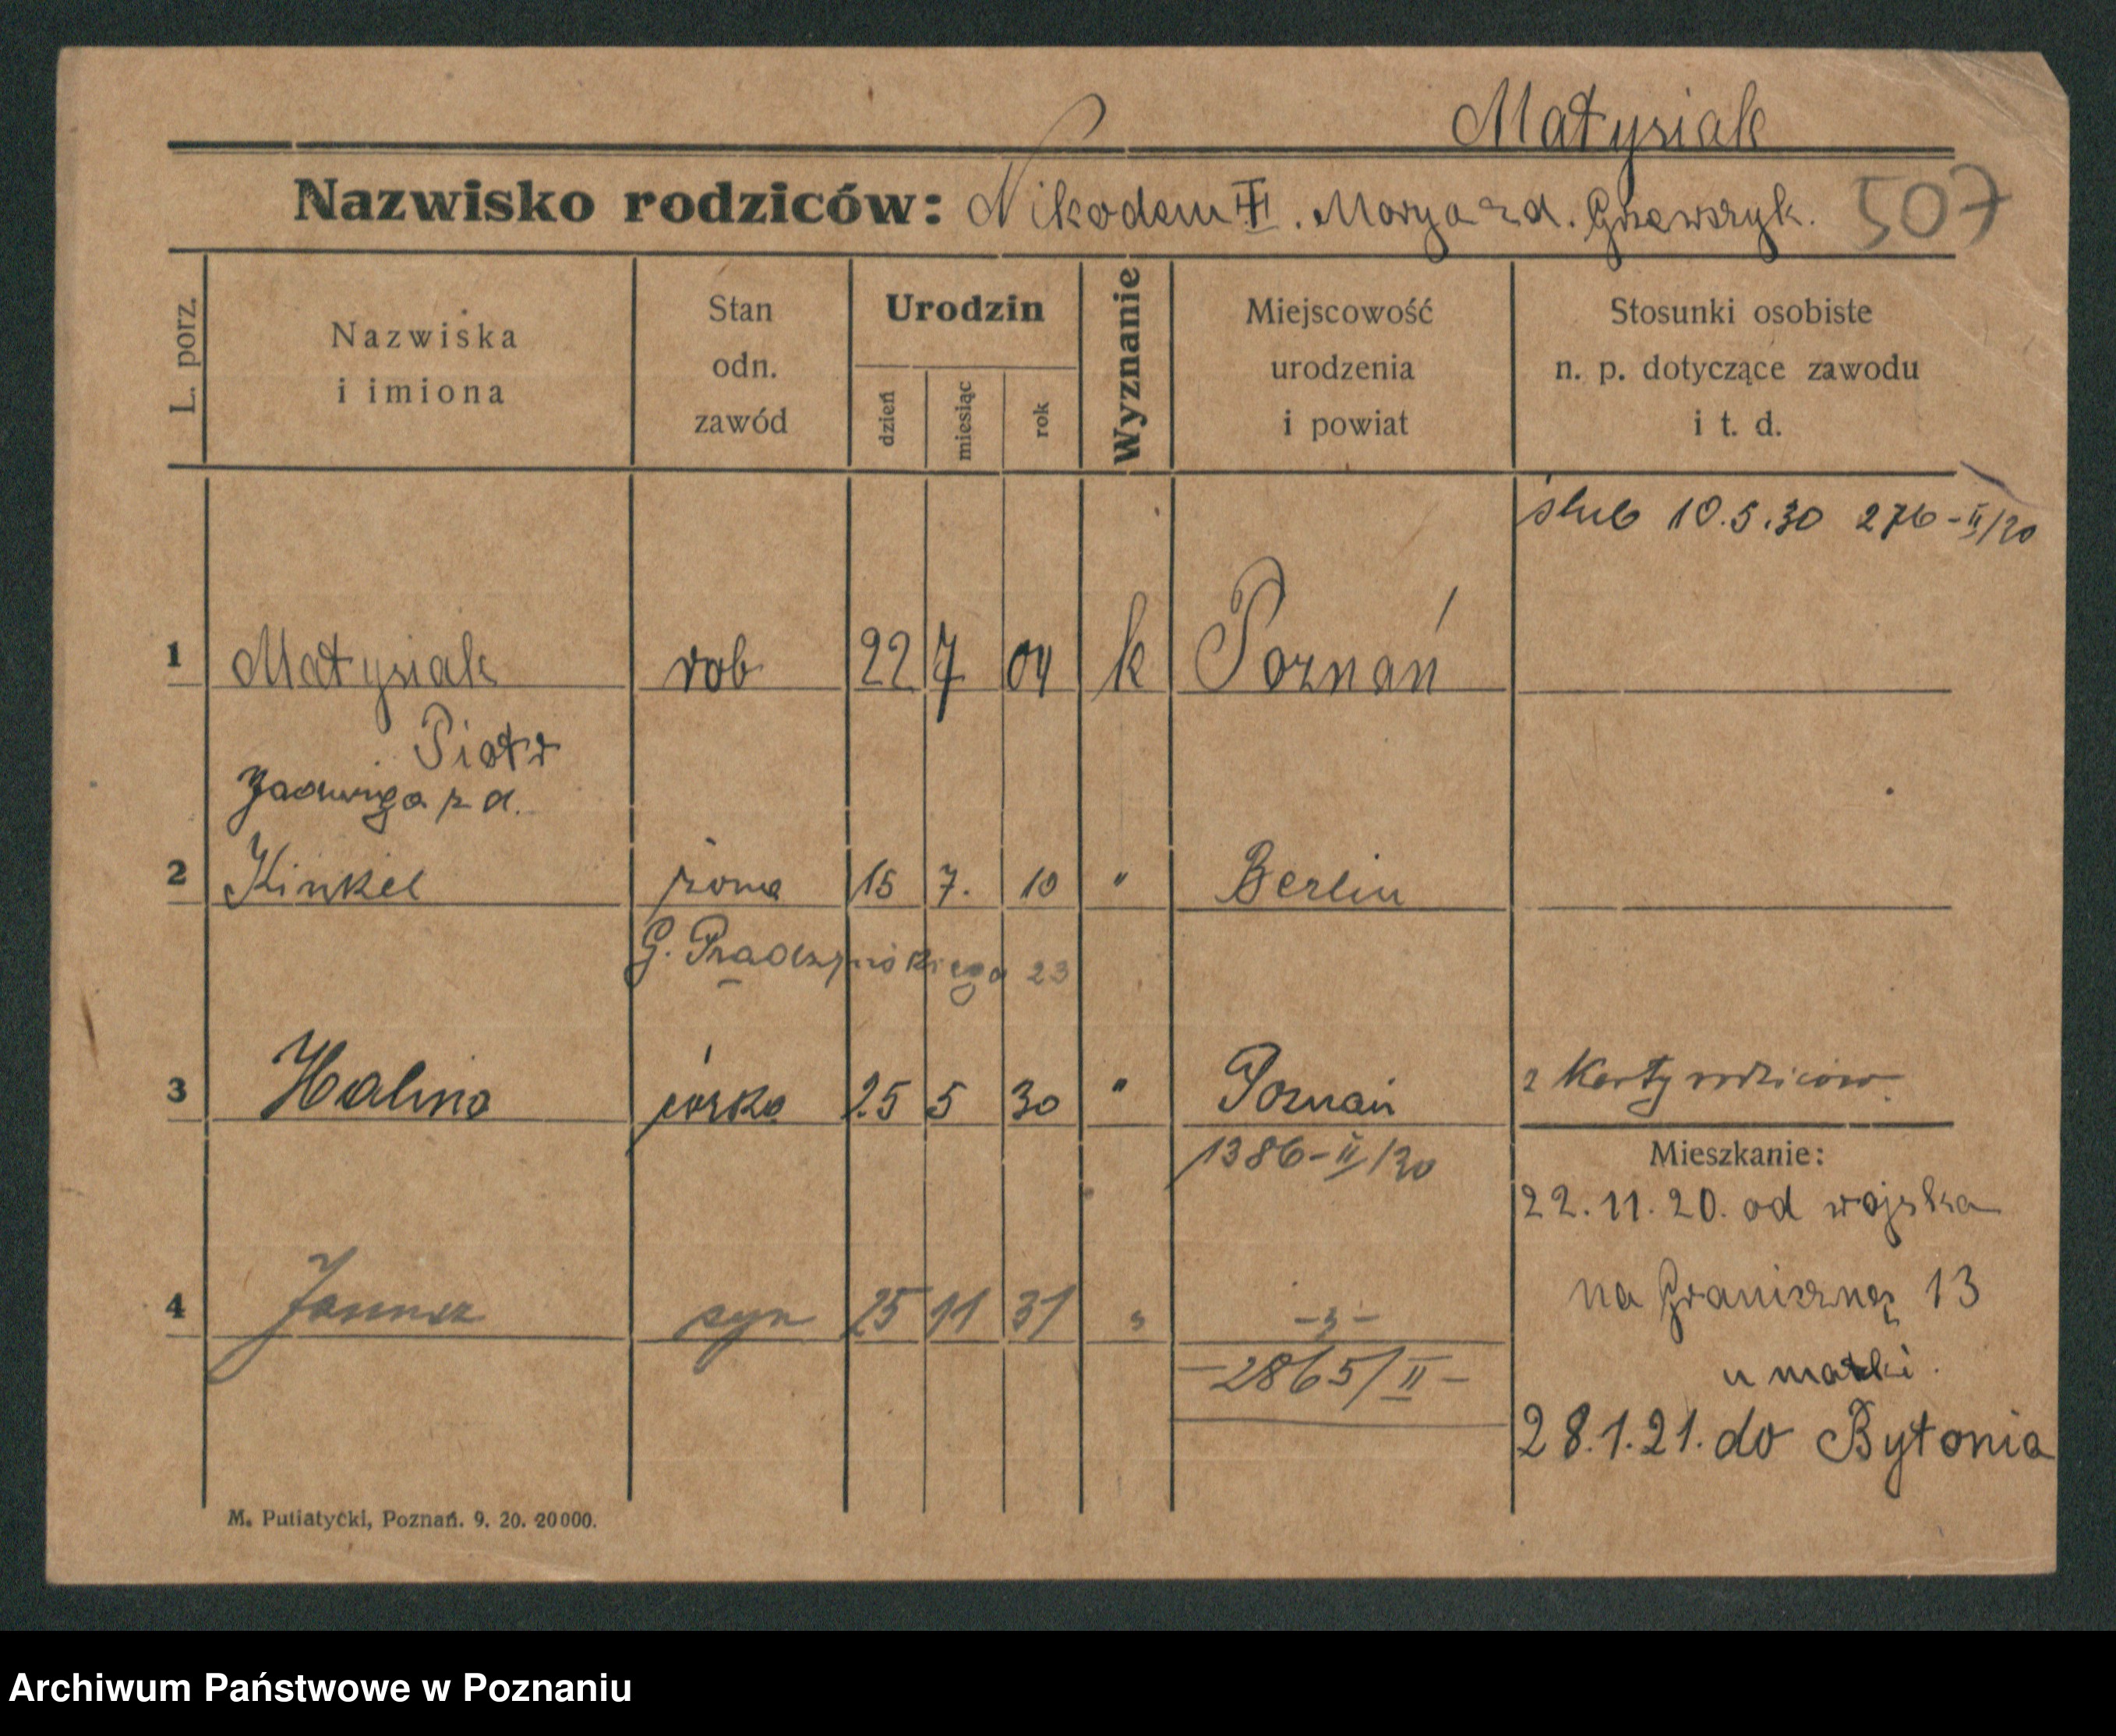 Matysiak
Nazwisko rodziców: Nikodem III. Marya zd. 507
L. porz.
Nazwiska i imiona
Stan odn. zawód
Urodzin
dzień
miesiąc
rok
Wyznanie
Miejscowość urodzenia i powiat
Stosunki osobiste n. p. dotyczące zawodu i t. d.
ślub 10.5.30 276-II/30
1 Matysiak rob 22 7 04 k Poznań
Piotr
Jadwiga z d.
2 Kinkel żona 15 7. 10 " Berlin
G. Prądzyńskiego 23
3 Halina córka 25 5 30 " Poznań z Karty rodziców
1386-II/30
Mieszkanie:
22.11.20. od wojska
4 Janusz syn 25 11 31 " -"-
na Graniczną 13
-2865/II-
u matki.
28.1.21. do Bytonia
M. Putiatycki, Poznań. 9. 20. 20000.
Archiwum Państwowe w Poznaniu